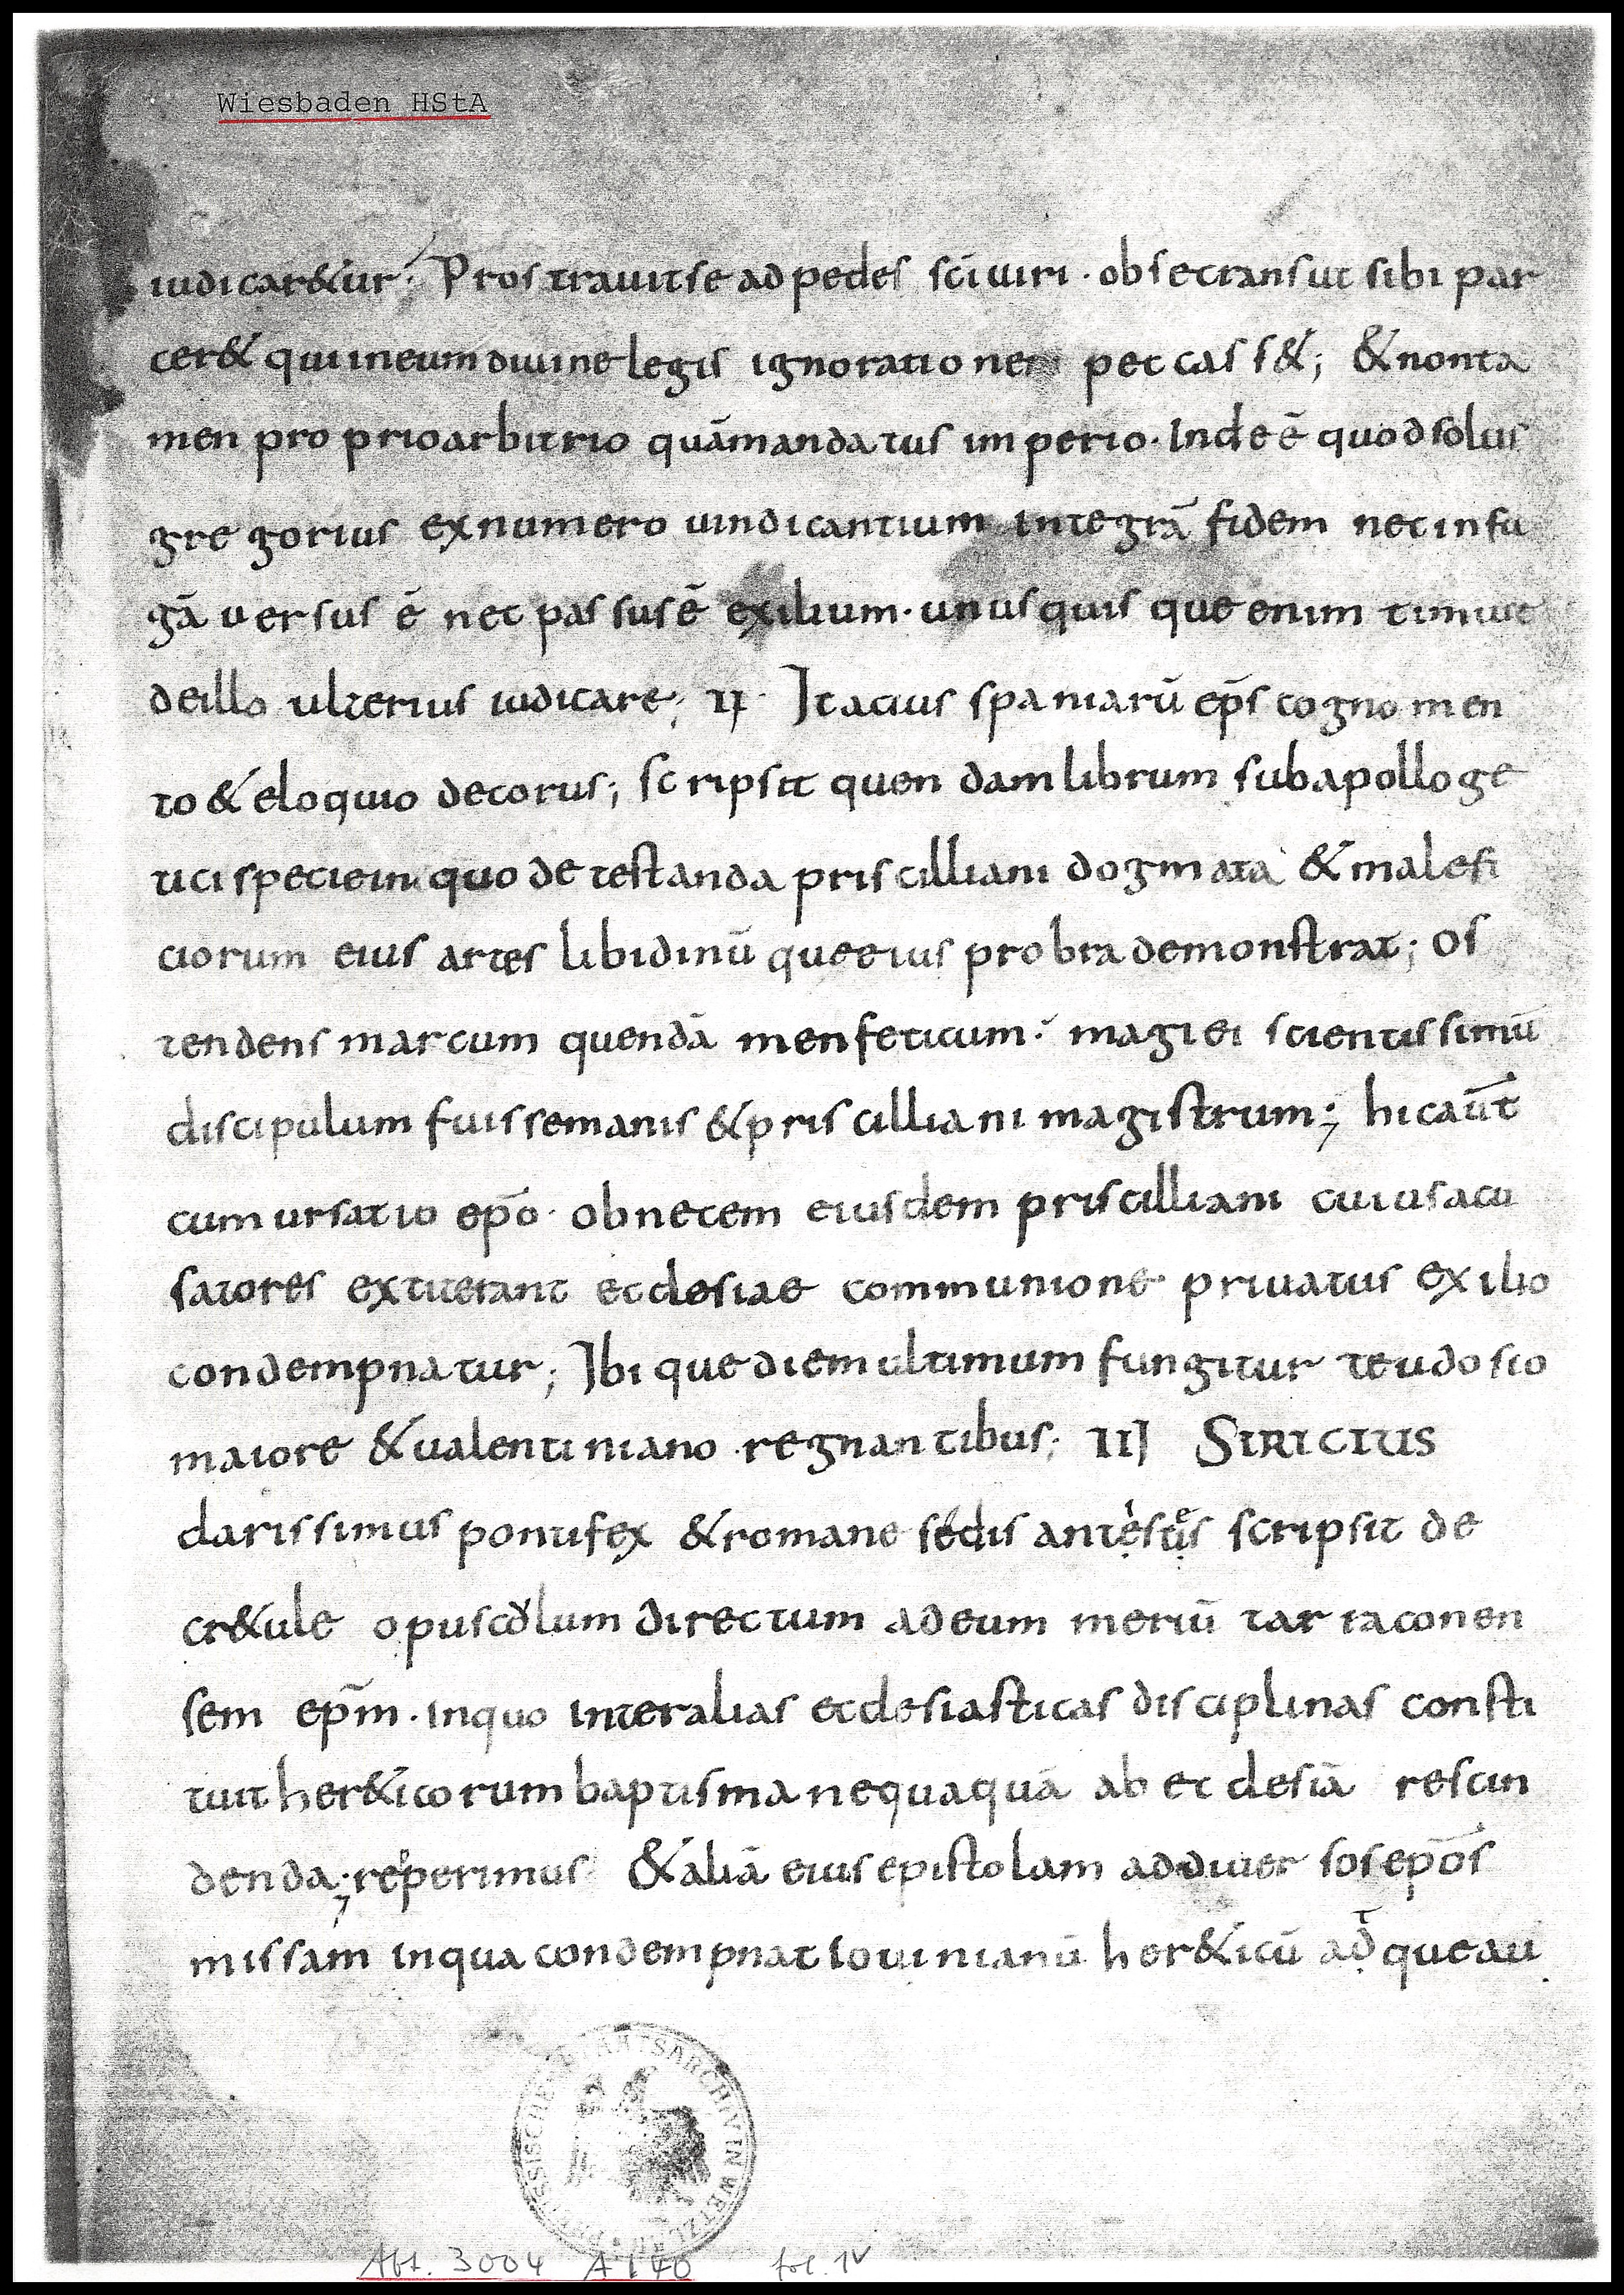 Wiesbaden HStA
iudicar&ur; Prostrauit se ad pedes sci uiri · obsecrans ut sibi par
cer& qui in eum diuine legis ignorationem peccass&; & non ta
men proprio arbitrio quā mandatus imperio · Inde ē quod solus
gregorius ex numero uindicantium integrā fidem nec in fu
gā uersus ē nec passus ē exilium · unus quis que enim timuit
de illo ulterius iudicare; II · Itacius spaniarū ep̄s cognomen
to & eloquio decorus; scripsit quendam librum sub apolloge
tici speciem quo detestanda priscilliani dogmata & malefi
ciorum eius artes libidinū que eius probra demonstrat; os
tendens marcum quendā menfeticum · magiei scientissimū
discipulum fuisse manis & priscilliani magistrum; hic aūt
cum ursatio ep̄o · ob necem eiusdem priscilliani cuius acu
satores extiterant ecclesiae communione priuatus exilio
condempnatur; Ibi que diem ultimum fungitur teudosio
maiore & ualentiniano regnantibus; III SIRICIUS
clarissimus pontifex & romane sedis antestes scripsit de
cr&ule opusculum directum ad eum meriū tarraconen
sem ep̄m · in quo inter alias ecclesiasticas disciplinas consti
tuit her&icorum baptisma nequaquā ab ecclesiā rescin
denda; reperimus & aliā eius epistolam ad diuersos ep̄os
missam in qua condempnat iouinianū her&icū adque au
PREUSSISCHES STAATSARCHIV IN WETZLAR
Abt. 3004 A 140 fol. 1v